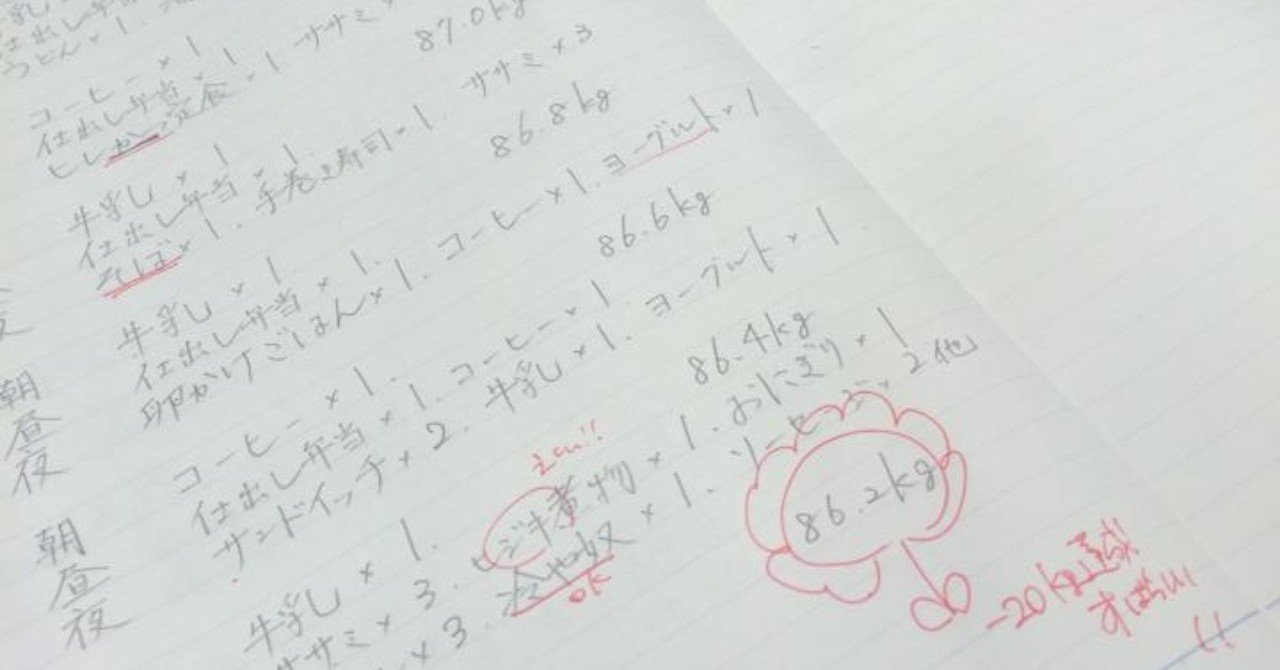 仕出し弁当
うどん×1.
コーヒー×1
仕出し弁当×1
ヒレカツ定食×1 ササミ×
87.0kg
牛乳×1
仕出し弁当×1
そば×1. 手巻き寿司×1. ササミ×3
86.8kg
朝 牛乳×1
昼 仕出し弁当×1.
夜 卵かけごはん×1. コーヒー×1. ヨーグルト×1
86.6kg
朝 コーヒー×1.
昼 仕出し弁当×1. コーヒー×1
夜 サンドイッチ×2. 牛乳×1. ヨーグルト×1
86.4kg
牛乳×1.
ササミ×3. ヒジキ煮物×1. おにぎり×1
×3. 冷や奴×1. ソーセージ×2他
えらい!!
OK
86.2kg
-20kg達成!
すばらしい
!!